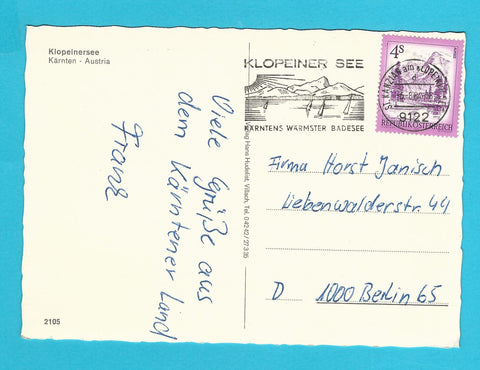 Klopeinersee
Kärnten - Austria
Viele Grüße aus
dem Kärntener Land
Franz
2105
KLOPEINER SEE
KÄRNTENS WÄRMSTER BADESEE
Verlag Hans Hudelist, Villach, Tel. 04242/27335
4S
REPUBLIK ÖSTERREICH
ST. KANZIAN am KLOPEINER SEE
9122
Firma Horst Janisch
Liebenwalderstr. 44
D 1000 Berlin 65